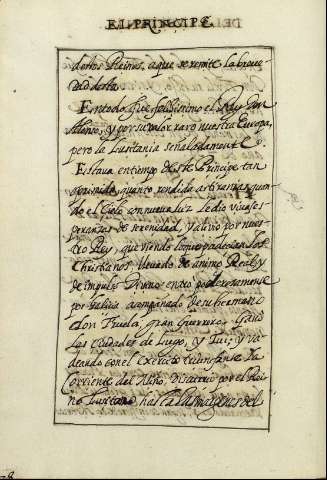 EL PRINCIPE
de los Reinos, a que se remite la breue-
dad desta
En todo fue felicissimo el Rey Don
Alonso, y por su valor raro nuestra Europa,
pero la Lusitania señaladamente
Estaua en tiempo deste Principe tan
oprimida, quanto rendida a tiranias, quan-
do el Cielo con nueua luz le dio viuas es-
peranzas de serenidad, y aliuio por nues-
tro Rey, que viendo lo que padecian los
Christianos lleuado de animo Real, y
de impulso Diuino entro poderosamente
por Galicia acompañado de su hermano
Don Fruela, gran Guerrero: Ganó
las Ciudades de Lugo, y Tui; y va-
deando con el Exercito triunfante la
Corriente del Miño, Discurrio por el Rei-
no Lusitano hasta las margenes del